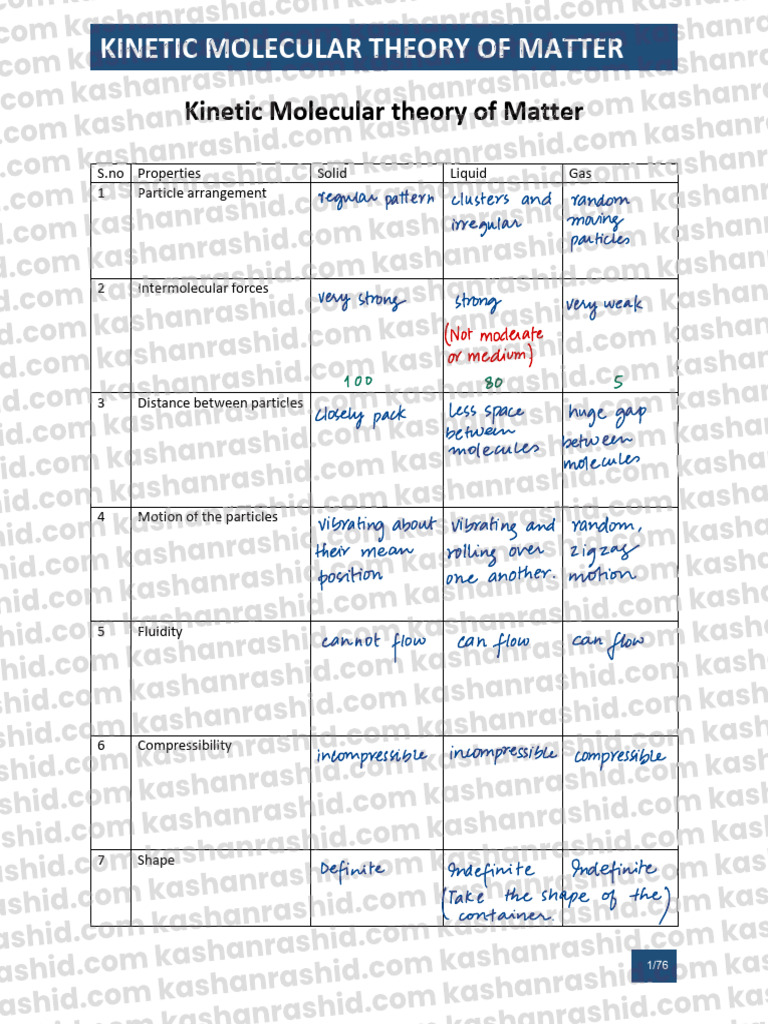 KINETIC MOLECULAR THEORY OF MATTER
Kinetic Molecular theory of Matter
S.no Properties Solid Liquid Gas
1 Particle arrangement regular pattern clusters and irregular random moving particles
2 Intermolecular forces very strong strong very weak
(Not moderate or medium)
100 80 5
3 Distance between particles closely pack less space between molecules huge gap between molecules
4 Motion of the particles vibrating about their mean position vibrating and rolling over one another. random, zigzag motion
5 Fluidity cannot flow can flow can flow
6 Compressibility incompressible incompressible compressible
7 Shape Definite Indefinite Indefinite
(Take the shape of the container.)
1/76
kashanrashid.com